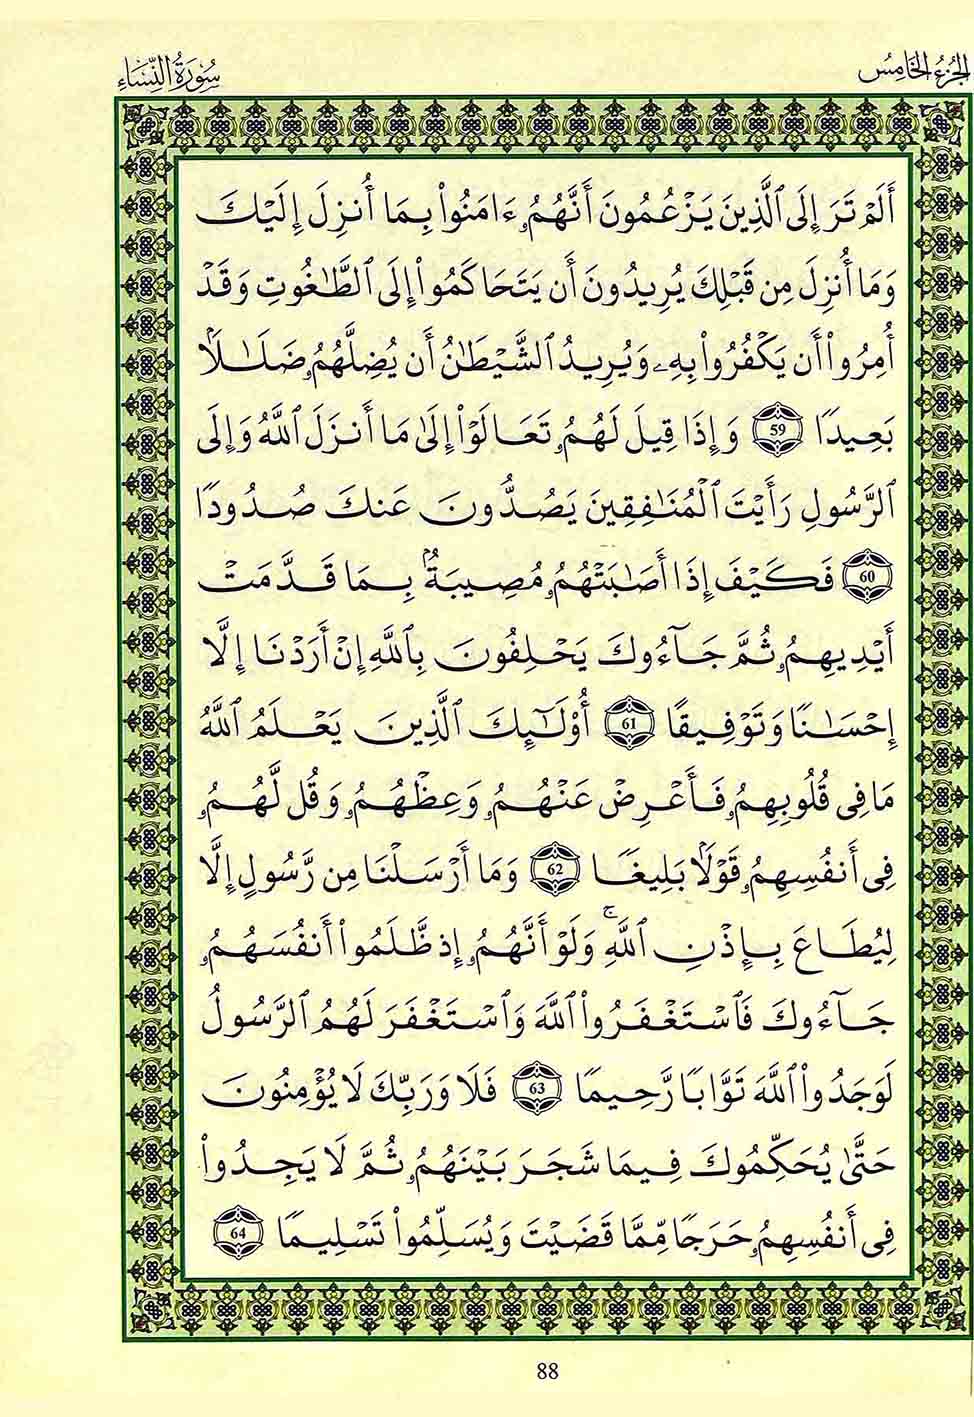 الجزء الخامس
سورة النساء
أَلَمْ تَرَ إِلَى ٱلَّذِينَ يَزْعُمُونَ أَنَّهُمُۥ ءَامَنُوا۟ بِمَا أُنزِلَ إِلَيْكَ
وَمَا أُنزِلَ مِن قَبْلِكَ يُرِيدُونَ أَن يَتَحَاكَمُوا۟ إِلَى ٱلطَّٰغُوتِ وَقَدْ
أُمِرُوا۟ أَن يَكْفُرُوا۟ بِهِۦ وَيُرِيدُ ٱلشَّيْطَٰنُ أَن يُضِلَّهُمُۥ ضَلَٰلًا
بَعِيدًا 59 وَإِذَا قِيلَ لَهُمُۥ تَعَالَوْا۟ إِلَىٰ مَا أَنزَلَ ٱللَّهُ وَإِلَى
ٱلرَّسُولِ رَأَيْتَ ٱلْمُنَٰفِقِينَ يَصُدُّونَ عَنكَ صُدُودًا
60 فَكَيْفَ إِذَا أَصَٰبَتْهُمُۥ مُصِيبَةٌ بِمَا قَدَّمَتْ
أَيْدِيهِمُۥ ثُمَّ جَآءُوكَ يَحْلِفُونَ بِٱللَّهِ إِنْ أَرَدْنَا إِلَّا
إِحْسَٰنًا وَتَوْفِيقًا 61 أُو۟لَٰٓئِكَ ٱلَّذِينَ يَعْلَمُ ٱللَّهُ
مَا فِى قُلُوبِهِمُۥ فَأَعْرِضْ عَنْهُمُۥ وَعِظْهُمُۥ وَقُل لَّهُمُۥ
فِى أَنفُسِهِمُۥ قَوْلًا بَلِيغًا 62 وَمَا أَرْسَلْنَا مِن رَّسُولٍ إِلَّا
لِيُطَاعَ بِإِذْنِ ٱللَّهِ ۚ وَلَوْ أَنَّهُمُۥ إِذ ظَّلَمُوا۟ أَنفُسَهُمُۥ
جَآءُوكَ فَٱسْتَغْفَرُوا۟ ٱللَّهَ وَٱسْتَغْفَرَ لَهُمُ ٱلرَّسُولُ
لَوَجَدُوا۟ ٱللَّهَ تَوَّابًا رَّحِيمًا 63 فَلَا وَرَبِّكَ لَا يُؤْمِنُونَ
حَتَّىٰ يُحَكِّمُوكَ فِيمَا شَجَرَ بَيْنَهُمُۥ ثُمَّ لَا يَجِدُوا۟
فِى أَنفُسِهِمُۥ حَرَجًا مِّمَّا قَضَيْتَ وَيُسَلِّمُوا۟ تَسْلِيمًا 64
88